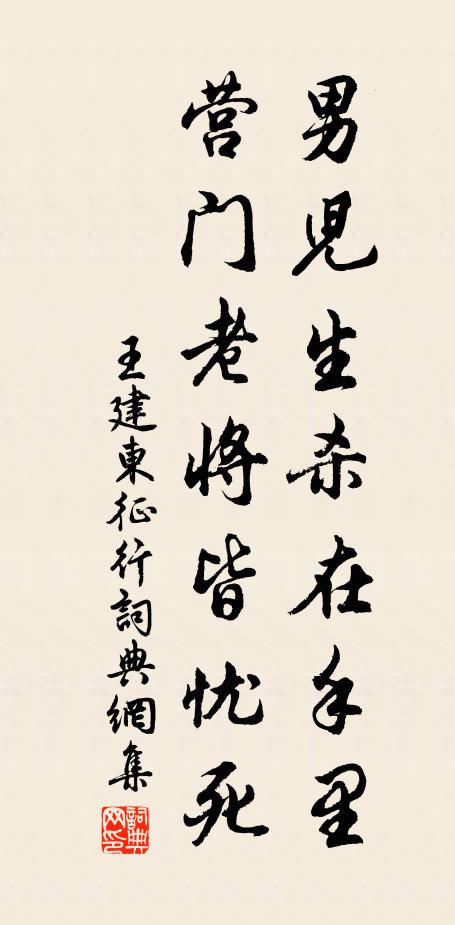 男児生杀在手里
营门老将皆忧死
王建東征行詞典網集
詞典网印